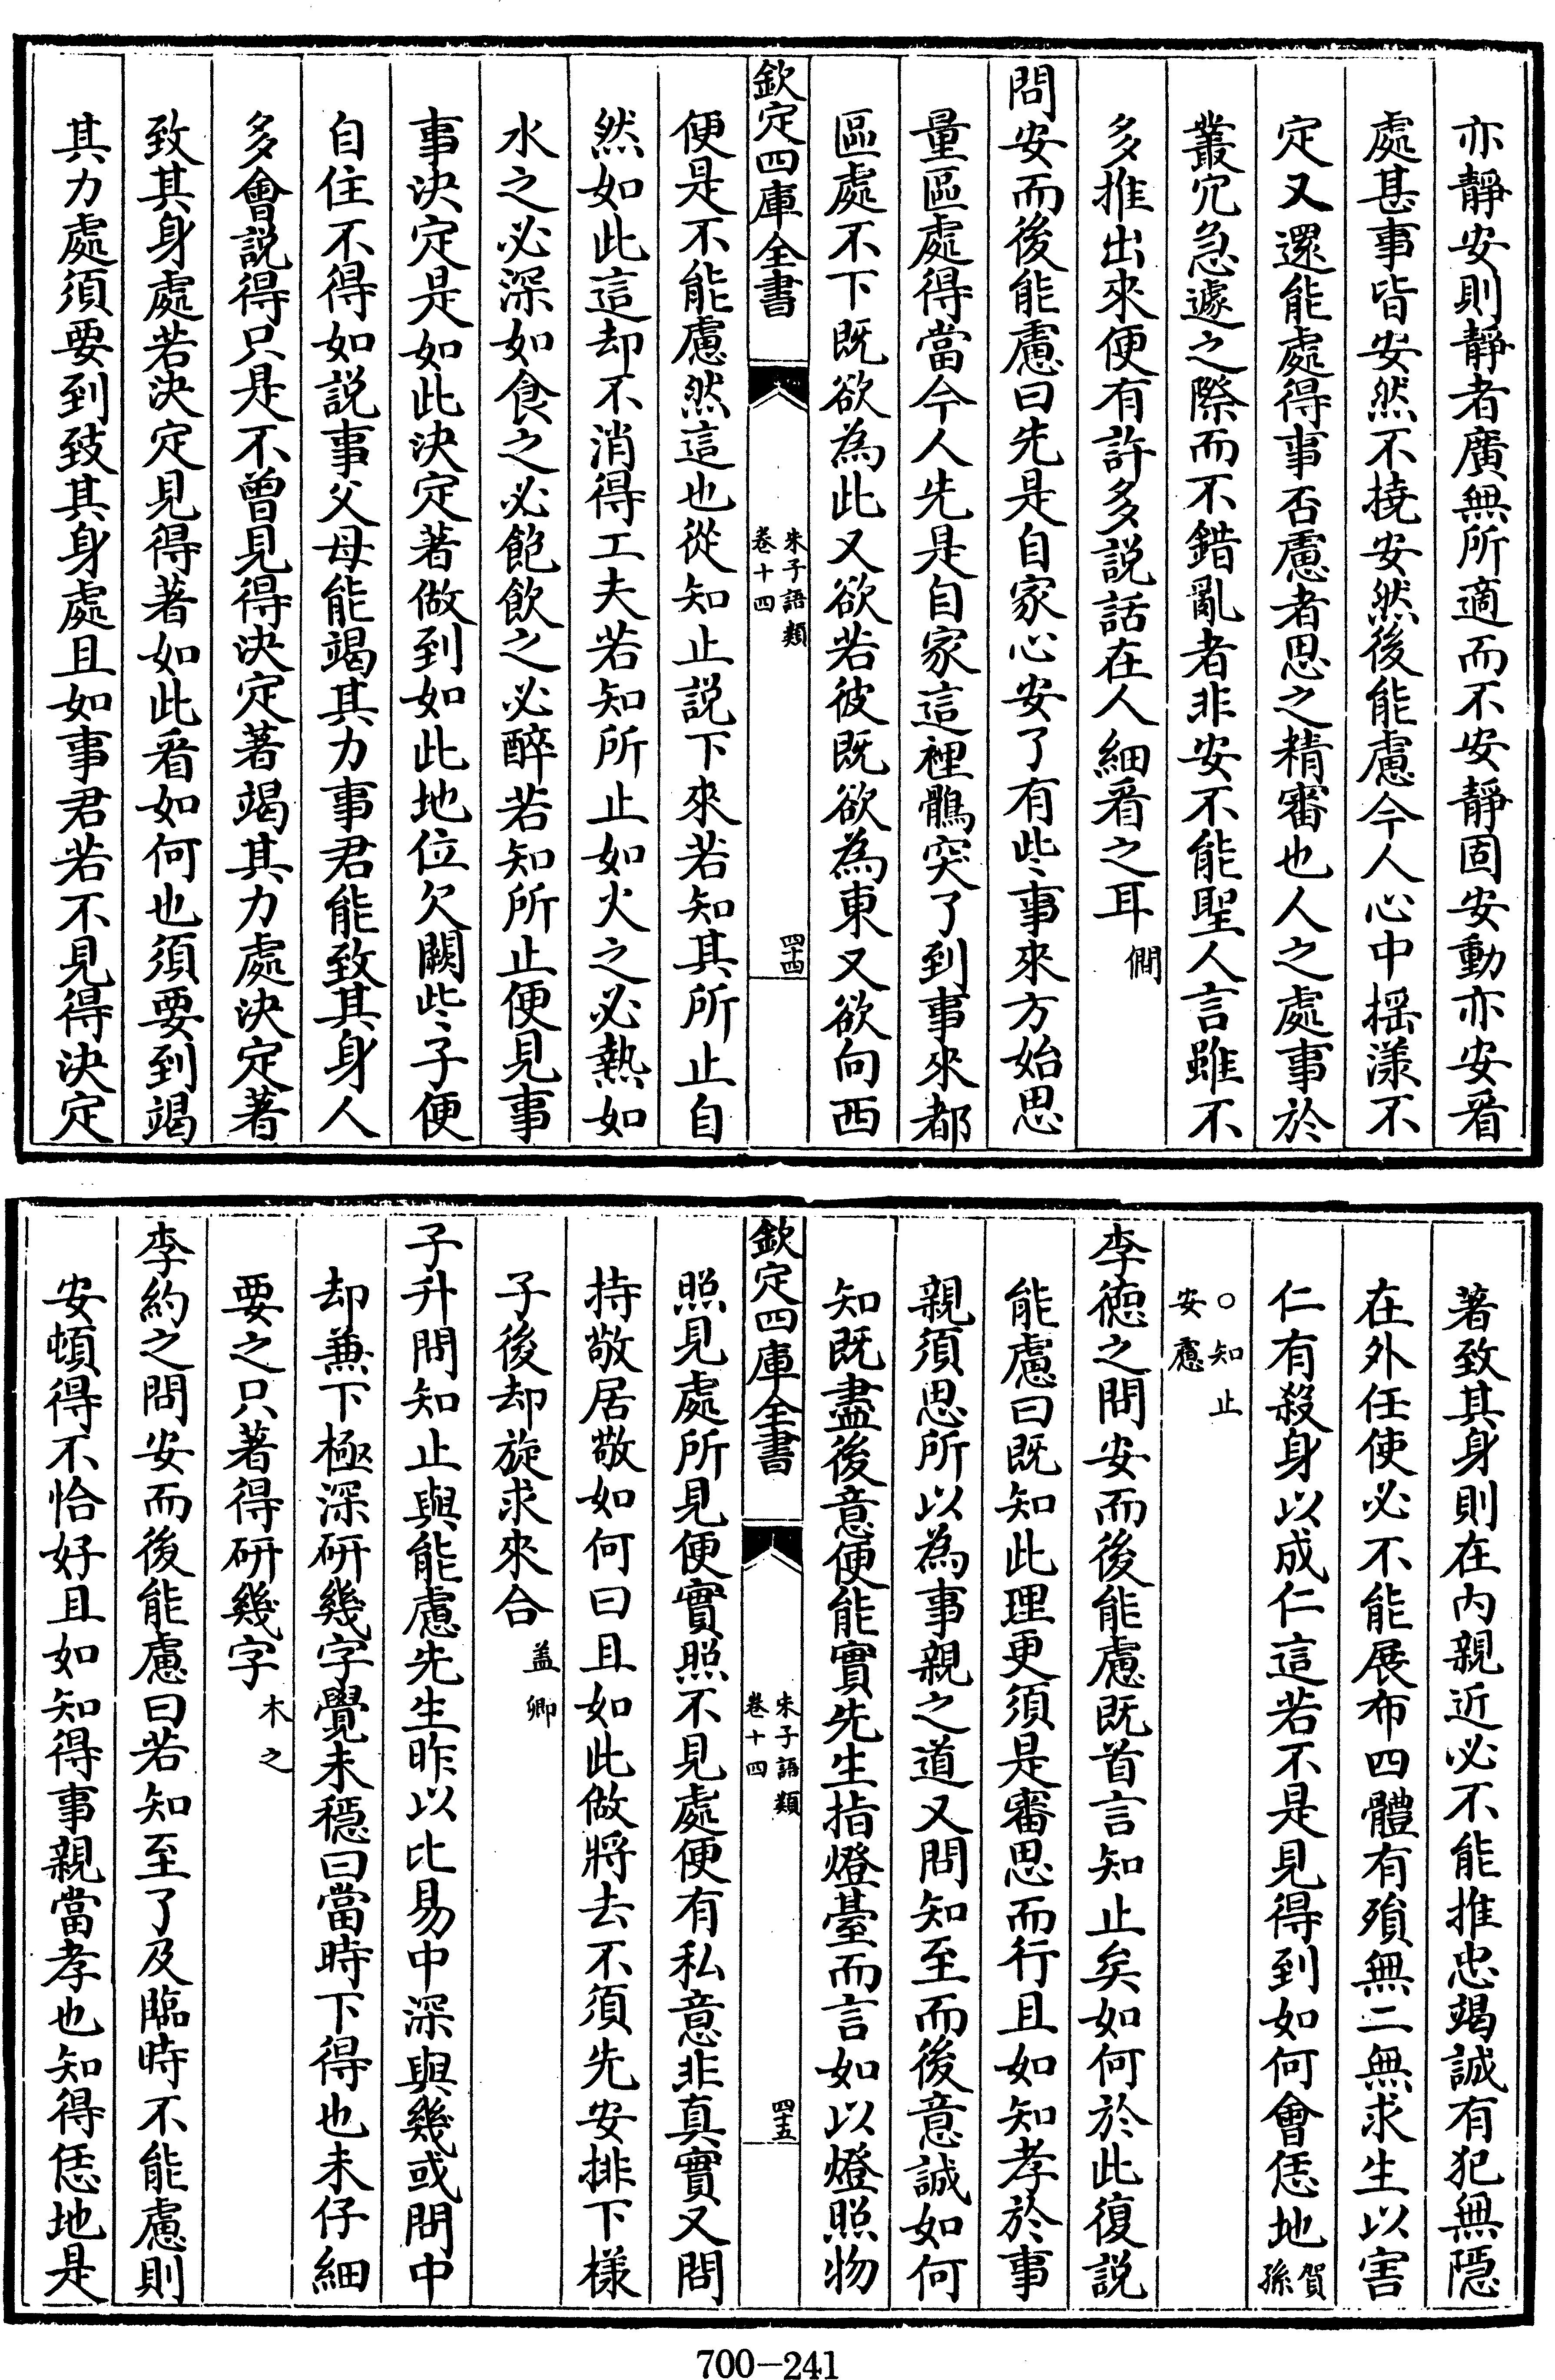 亦靜安則靜者廣無所適而不安靜固安動亦安看
處甚事皆安然不撓安然後能慮今人心中摇漾不
定又還能處得事否慮者思之精審也人之處事於
叢冗急遽之際而不錯亂者非安不能聖人言雖不
多推出來便有許多說話在人細看之耳僩
問安而後能慮曰先是自家心安了有些事來方始思
量區處得當今人先是自家這裡鶻突了到事來都
區處不下既欲為此又欲若彼既欲為東又欲向西
欽定四庫全書
朱子語類
卷十四
四十四
便是不能慮然這也從知止説下來若知其所止自
然如此這却不消得工夫若知所止如火之必熱如
水之必深如食之必飽飲之必醉若知所止便見事
事決定是如此決定著做到如此地位欠闕些子便
自住不得如説事父母能竭其力事君能致其身人
多會説得只是不曾見得決定著竭其力處決定著
致其身處若決定見得著如此看如何也須要到竭
其力處須要到致其身處且如事君若不見得決定
著致其身則在内親近必不能推忠竭誠有犯無隱
在外任使必不能展布四體有殞無二無求生以害
仁有殺身以成仁這若不是見得到如何會恁地賀孫
○知止
安慮
李德之問安而後能慮既首言知止矣如何於此復説
能慮曰既知此理更須是審思而行且如知孝於事
親須思所以為事親之道又問知至而後意誠如何
知既盡後意便能實先生指燈臺而言如以燈照物
欽定四庫全書
朱子語類
卷十四
四十五
照見處所見便實照不見處便有私意非真實又問
持敬居敬如何曰且如此做將去不須先安排下樣
子後却旋求來合蓋卿
子升問知止與能慮先生昨以比易中深與幾或問中
却兼下極深研幾字覺未穩曰當時下得也未仔細
要之只著得研幾字木之
李約之問安而後能慮曰若知至了及臨時不能慮則
安頓得不恰好且如知得事親當孝也知得恁地是
700-241